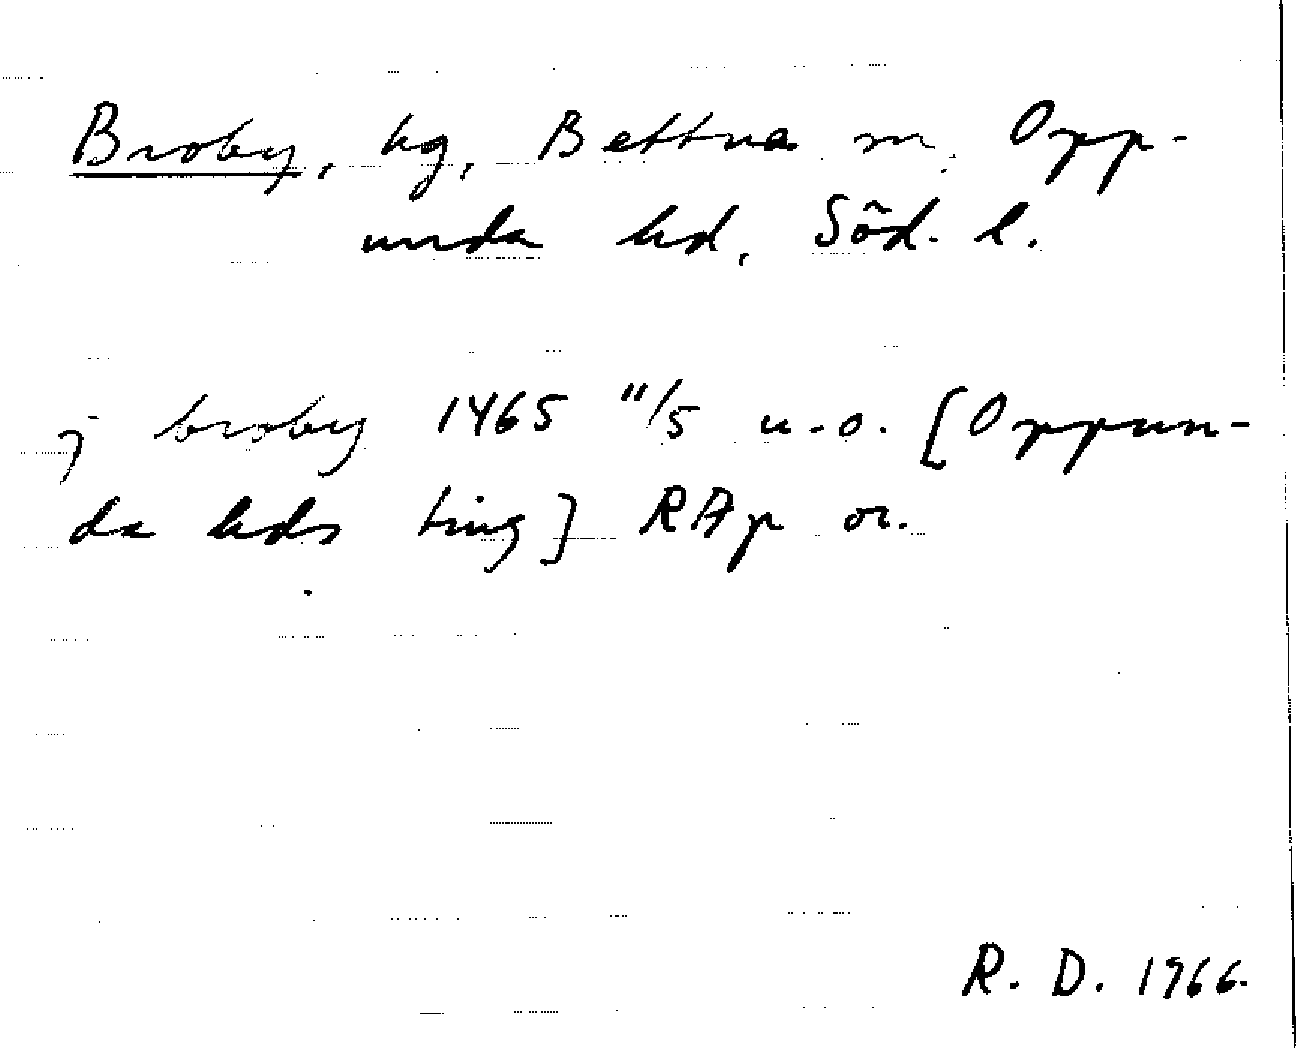 Broby, hg, Bettna sn, Opp-
unda hd, Söd. l.
j broby 1465 11/5 u.o. [Oppun-
da hds ting] RAp or.
R. D. 1966.